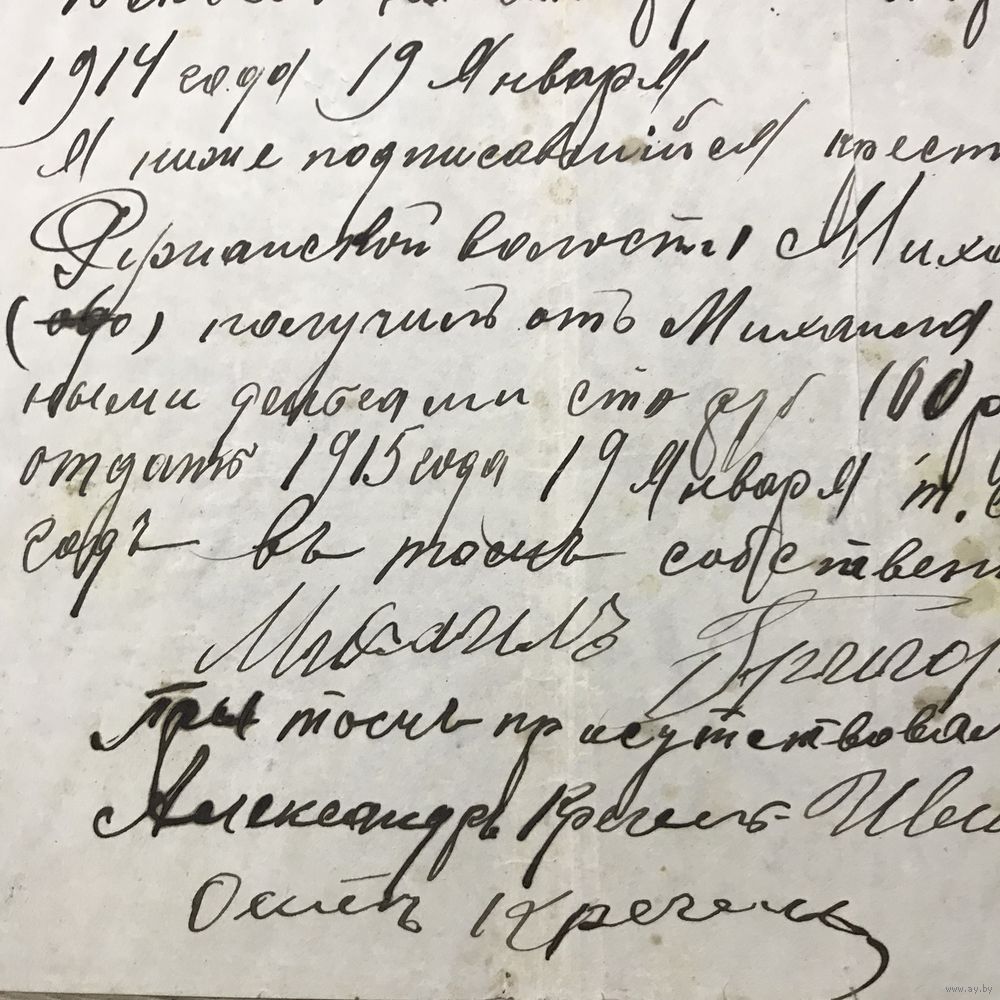 1914 года 19 Января
Я ниже подписавшийся крест
волости Миха
(одо) получилъ отъ Михаила
ными деньгами сто руб 100 р
отдать 1915 года 19 Января т. е
годъ въ томъ собствен
Михаилъ Григор
При томъ присутствовал
Александръ Кречель Ива
Осипъ Кречель
www.ay.by